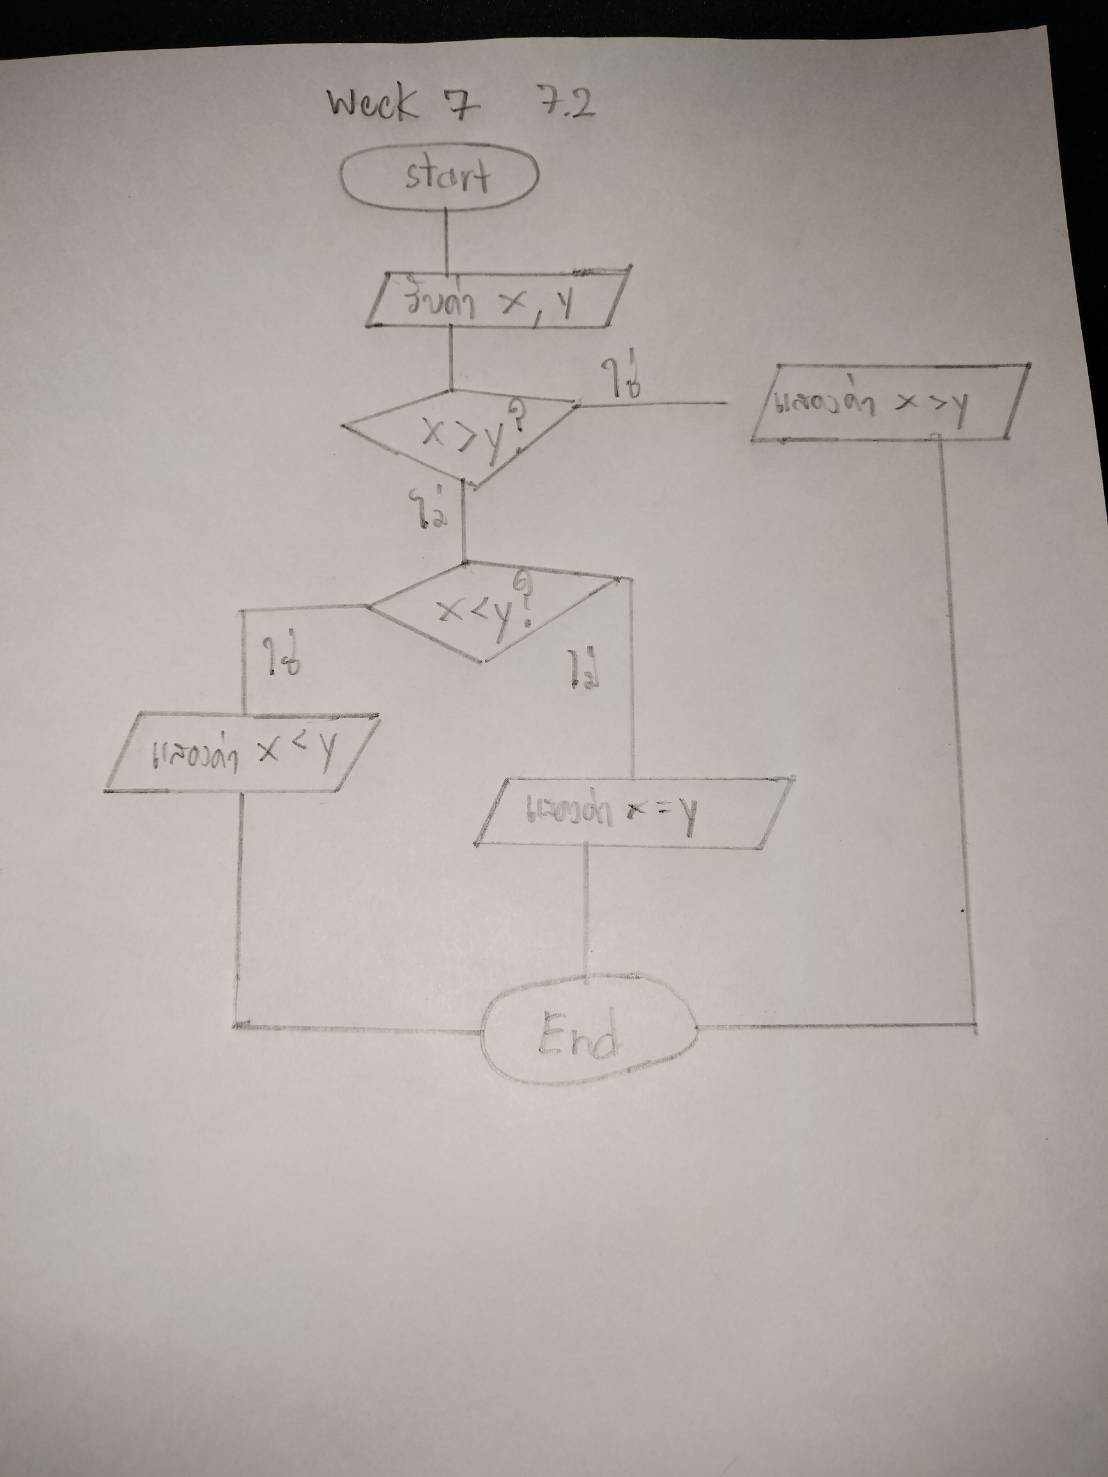 Week 7 7.2
start
รับค่า x, y
x > y?
ใช่
แสดงค่า x > y
ไม่
x < y?
ใช่
ไม่
แสดงค่า x < y
แสดงค่า x = y
End